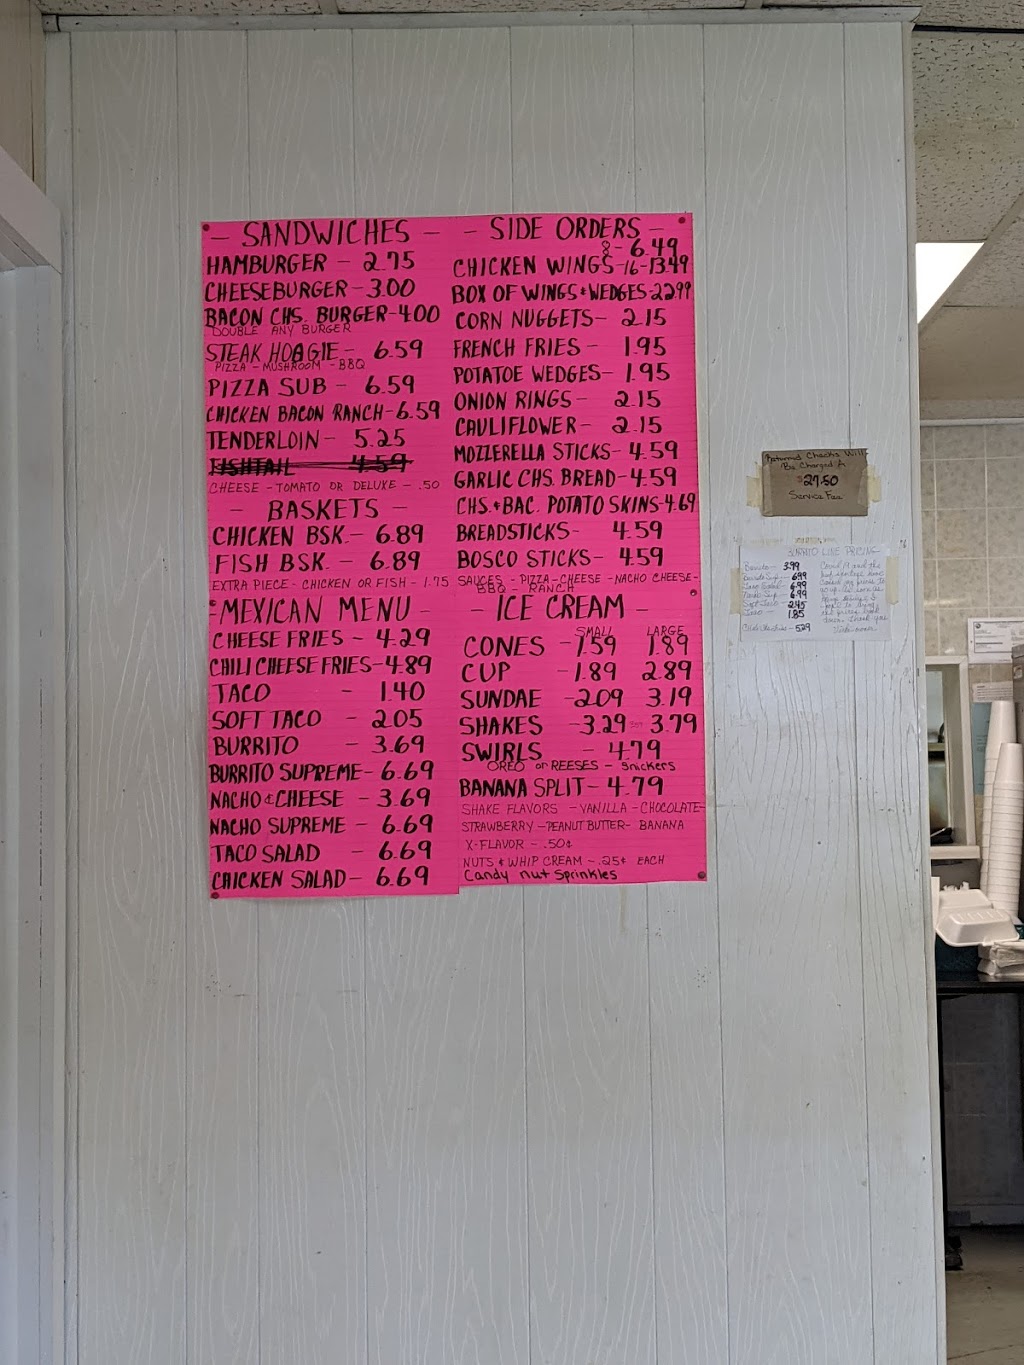 - SANDWICHES -
HAMBURGER - 2.75
CHEESEBURGER - 3.00
BACON CHS. BURGER - 4.00
DOUBLE ANY BURGER
STEAK HOAGIE - 6.59
PIZZA - MUSHROOM - BBQ
PIZZA SUB - 6.59
CHICKEN BACON RANCH - 6.59
TENDERLOIN - 5.25
FISHTAIL 4.59
CHEESE - TOMATO OR DELUXE - .50
- BASKETS -
CHICKEN BSK. - 6.89
FISH BSK. - 6.89
EXTRA PIECE - CHICKEN OR FISH - 1.75
- MEXICAN MENU -
CHEESE FRIES - 4.29
CHILI CHEESE FRIES - 4.89
TACO - 1.40
SOFT TACO - 2.05
BURRITO - 3.69
BURRITO SUPREME - 6.69
NACHO & CHEESE - 3.69
NACHO SUPREME - 6.69
TACO SALAD - 6.69
CHICKEN SALAD - 6.69
- SIDE ORDERS -
8 - 6.49
CHICKEN WINGS - 16 - 13.49
BOX OF WINGS & WEDGES - 22.99
CORN NUGGETS - 2.15
FRENCH FRIES - 1.95
POTATOE WEDGES - 1.95
ONION RINGS - 2.15
CAULIFLOWER - 2.15
MOZZERELLA STICKS - 4.59
GARLIC CHS. BREAD - 4.59
CHS. & BAC. POTATO SKINS - 4.69
BREADSTICKS - 4.59
BOSCO STICKS - 4.59
SAUCES - PIZZA - CHEESE - NACHO CHEESE -
BBQ - RANCH
- ICE CREAM -
SMALL LARGE
CONES - 1.59 1.89
CUP - 1.89 2.89
SUNDAE - 2.09 3.19
SHAKES - 3.29 3.79
SWIRLS - 4.79
OREO or REESES - Snickers
BANANA SPLIT - 4.79
SHAKE FLAVORS - VANILLA - CHOCOLATE -
STRAWBERRY - PEANUT BUTTER - BANANA
X-FLAVOR - .50¢
NUTS & WHIP CREAM - .25¢ EACH
Candy nut Sprinkles
Returned Checks Will
Be Charged A
$27.50
Service Fee
BURRITO LINE PRICING
Burrito - 3.99
Burrito Sup. - 6.99
Taco Salad - 6.99
Nacho Sup - 6.99
Soft Taco - 2.45
Taco - 1.85
5.29
Covid 19 and the